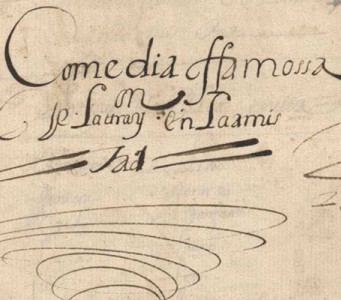 Comedia ffamossa
De La en Laamis
tad